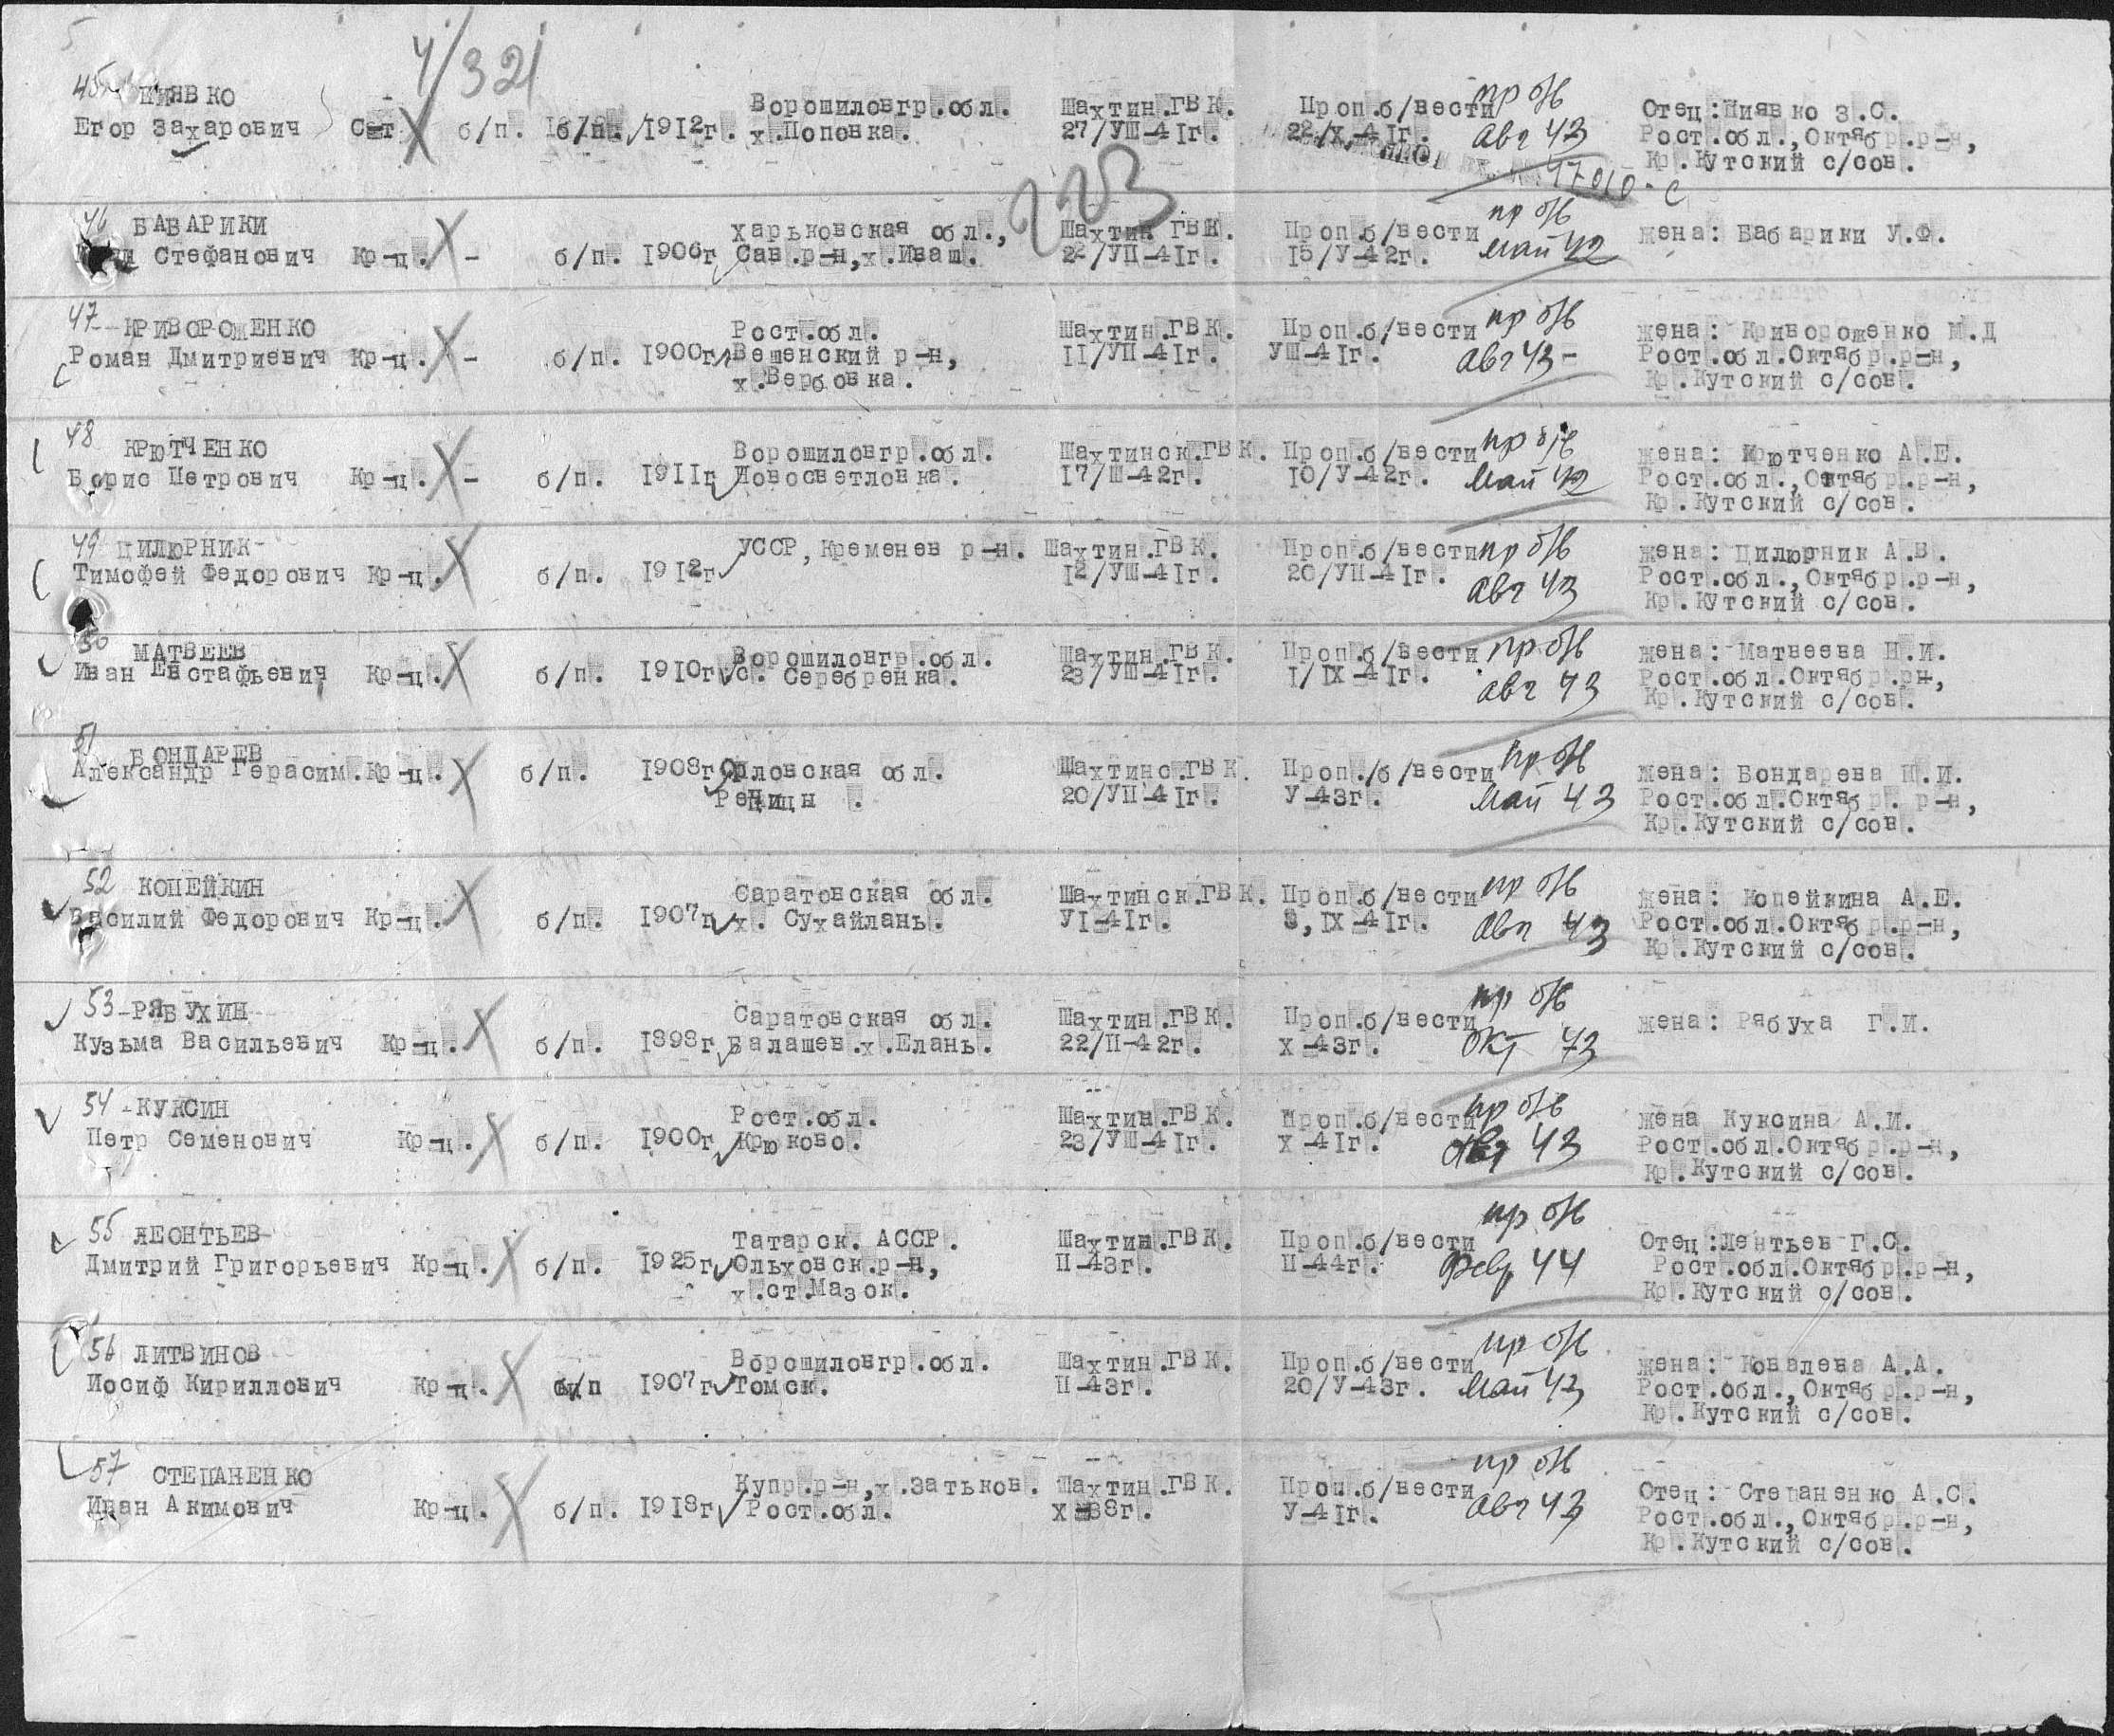 5
4/321
45
ПИЯВКО Ворошиловгр.обл. Шахтин.ГВК. Проп.б/вести пр б/в Отец:Пиявко З.С.
Егор Захарович С-т б/п. 1912г. х.Поповка. 27/УШ-41г. 22/Х-41г. авг 43 Рост.обл.,Октябр.р-н,
Кр.Кутский с/сов.
203
17010-с
46 БАБАРИКИ Харьковская обл., Шахтин ГВК. Проп.б/вести пр б/в жена: Бабарики У.Ф.
Стефанович Кр-ц. - б/п. 1906г Сав.р-н,х.Иваш. 22/УП-41г. 15/У-42г. май 42
47 КРИВОРОЖЕНКО Рост.обл. Шахтин.ГВК. Проп.б/вести пр б/в жена: Кривороженко М.Д
Роман Дмитриевич Кр-ц. - б/п. 1900г Вешенский р-н, 11/УП-41г. УШ-41г. авг 43 - Рост.обл.Октябр.р-н,
х.Вербовка. Кр.Кутский с/сов.
48 КРЮТЧЕНКО Ворошиловгр.обл. Шахтинск.ГВК. Проп.б/вести пр б/в жена: Крютченко А.Е.
Борис Петрович Кр-ц. - б/п. 1911г Новосветловка. 17/Ш-42г. 10/У-42г. май 42 Рост.обл.,Октябр.р-н,
Кр.Кутский с/сов.
49 ЦИЛЮРНИК УССР,Кременев р-н. Шахтин.ГВК. Проп.б/вести пр б/в жена: Цилюрник А.В.
Тимофей Федорович Кр-ц. б/п. 1912г 12/УШ-41г. 20/УП-41г. авг 43 Рост.обл.,Октябр.р-н,
Кр.Кутский с/сов.
50 МАТВЕЕВ Ворошиловгр.обл. Шахтин.ГВК. Проп.б/вести пр б/в жена: Матвеева Н.И.
Иван Евстафьевич Кр-ц. б/п. 1910г с. Серебренка. 23/УШ-41г. 1/IX-41г. авг 43 Рост.обл.Октябр.рн,
Кр.Кутский с/сов.
51 БОНДАРЕВ
Александр Герасим.Кр-ц. б/п. 1908г Орловская обл. Шахтинс.ГВК. Проп./б/вести пр б/в жена: Бондарева Н.И.
20/УП-41г. У-43г. май 43 Рост.обл.Октябр. р-н,
Кр.Кутский с/сов.
52 КОПЕЙКИН Саратовская обл. Шахтинск.ГВК. Проп.б/вести пр б/в жена: Копейкина А.Е.
Василий Федорович Кр-ц. б/п. 1907г х. Сухайлань. УI-41г. 8,IX-41г. авг 43 Рост.обл.Октябр.р-н,
Кр.Кутский с/сов.
53 РЯБУХИН Саратовская обл. Шахтин.ГВК. Проп.б/вести пр б/в жена: Рябуха Г.И.
Кузьма Васильевич Кр-ц. б/п. 1898г Балашев.х.Елань. 22/П-42г. Х-43г. окт 43
54 КУКСИН Рост.обл. Шахтин.ГВК. Проп.б/вести пр б/в жена Куксина А.И.
Петр Семенович Кр-ц. б/п. 1900г Крюково. 23/УШ-41г. Х-41г. авг 43 Рост.обл.Октябр.р-н,
Кр.Кутский с/сов.
55 ЛЕОНТЬЕВ Татарск. АССР. Шахтин.ГВК. Проп.б/вести пр б/в Отец:Лентьев Г.С.
Дмитрий Григорьевич Кр-ц. б/п. 1925г Ольховск.р-н, П-43г. П-44г. февр 44 Рост.обл.Октябр.р-н,
х.ст.Мазок. Кр.Кутский с/сов.
56 ЛИТВИНОВ Ворошиловгр.обл. Шахтин.ГВК. Проп.б/вести пр б/в жена: Ковалева А.А.
Иосиф Кириллович Кр-ц. б/п 1907г Томск. П-43г. 20/У-43г. май 43 Рост.обл.,Октябр.р-н,
Кр.Кутский с/сов.
57 СТЕПАНЕНКО Купр.р-н,х.Затьков. Шахтин.ГВК. Проп.б/вести пр б/в Отец: Степаненко А.С.
Иван Акимович Кр-ц. б/п. 1918г Рост.обл. Х-38г. У-41г. авг 43 Рост.обл.,Октябр.р-н,
Кр.Кутский с/сов.